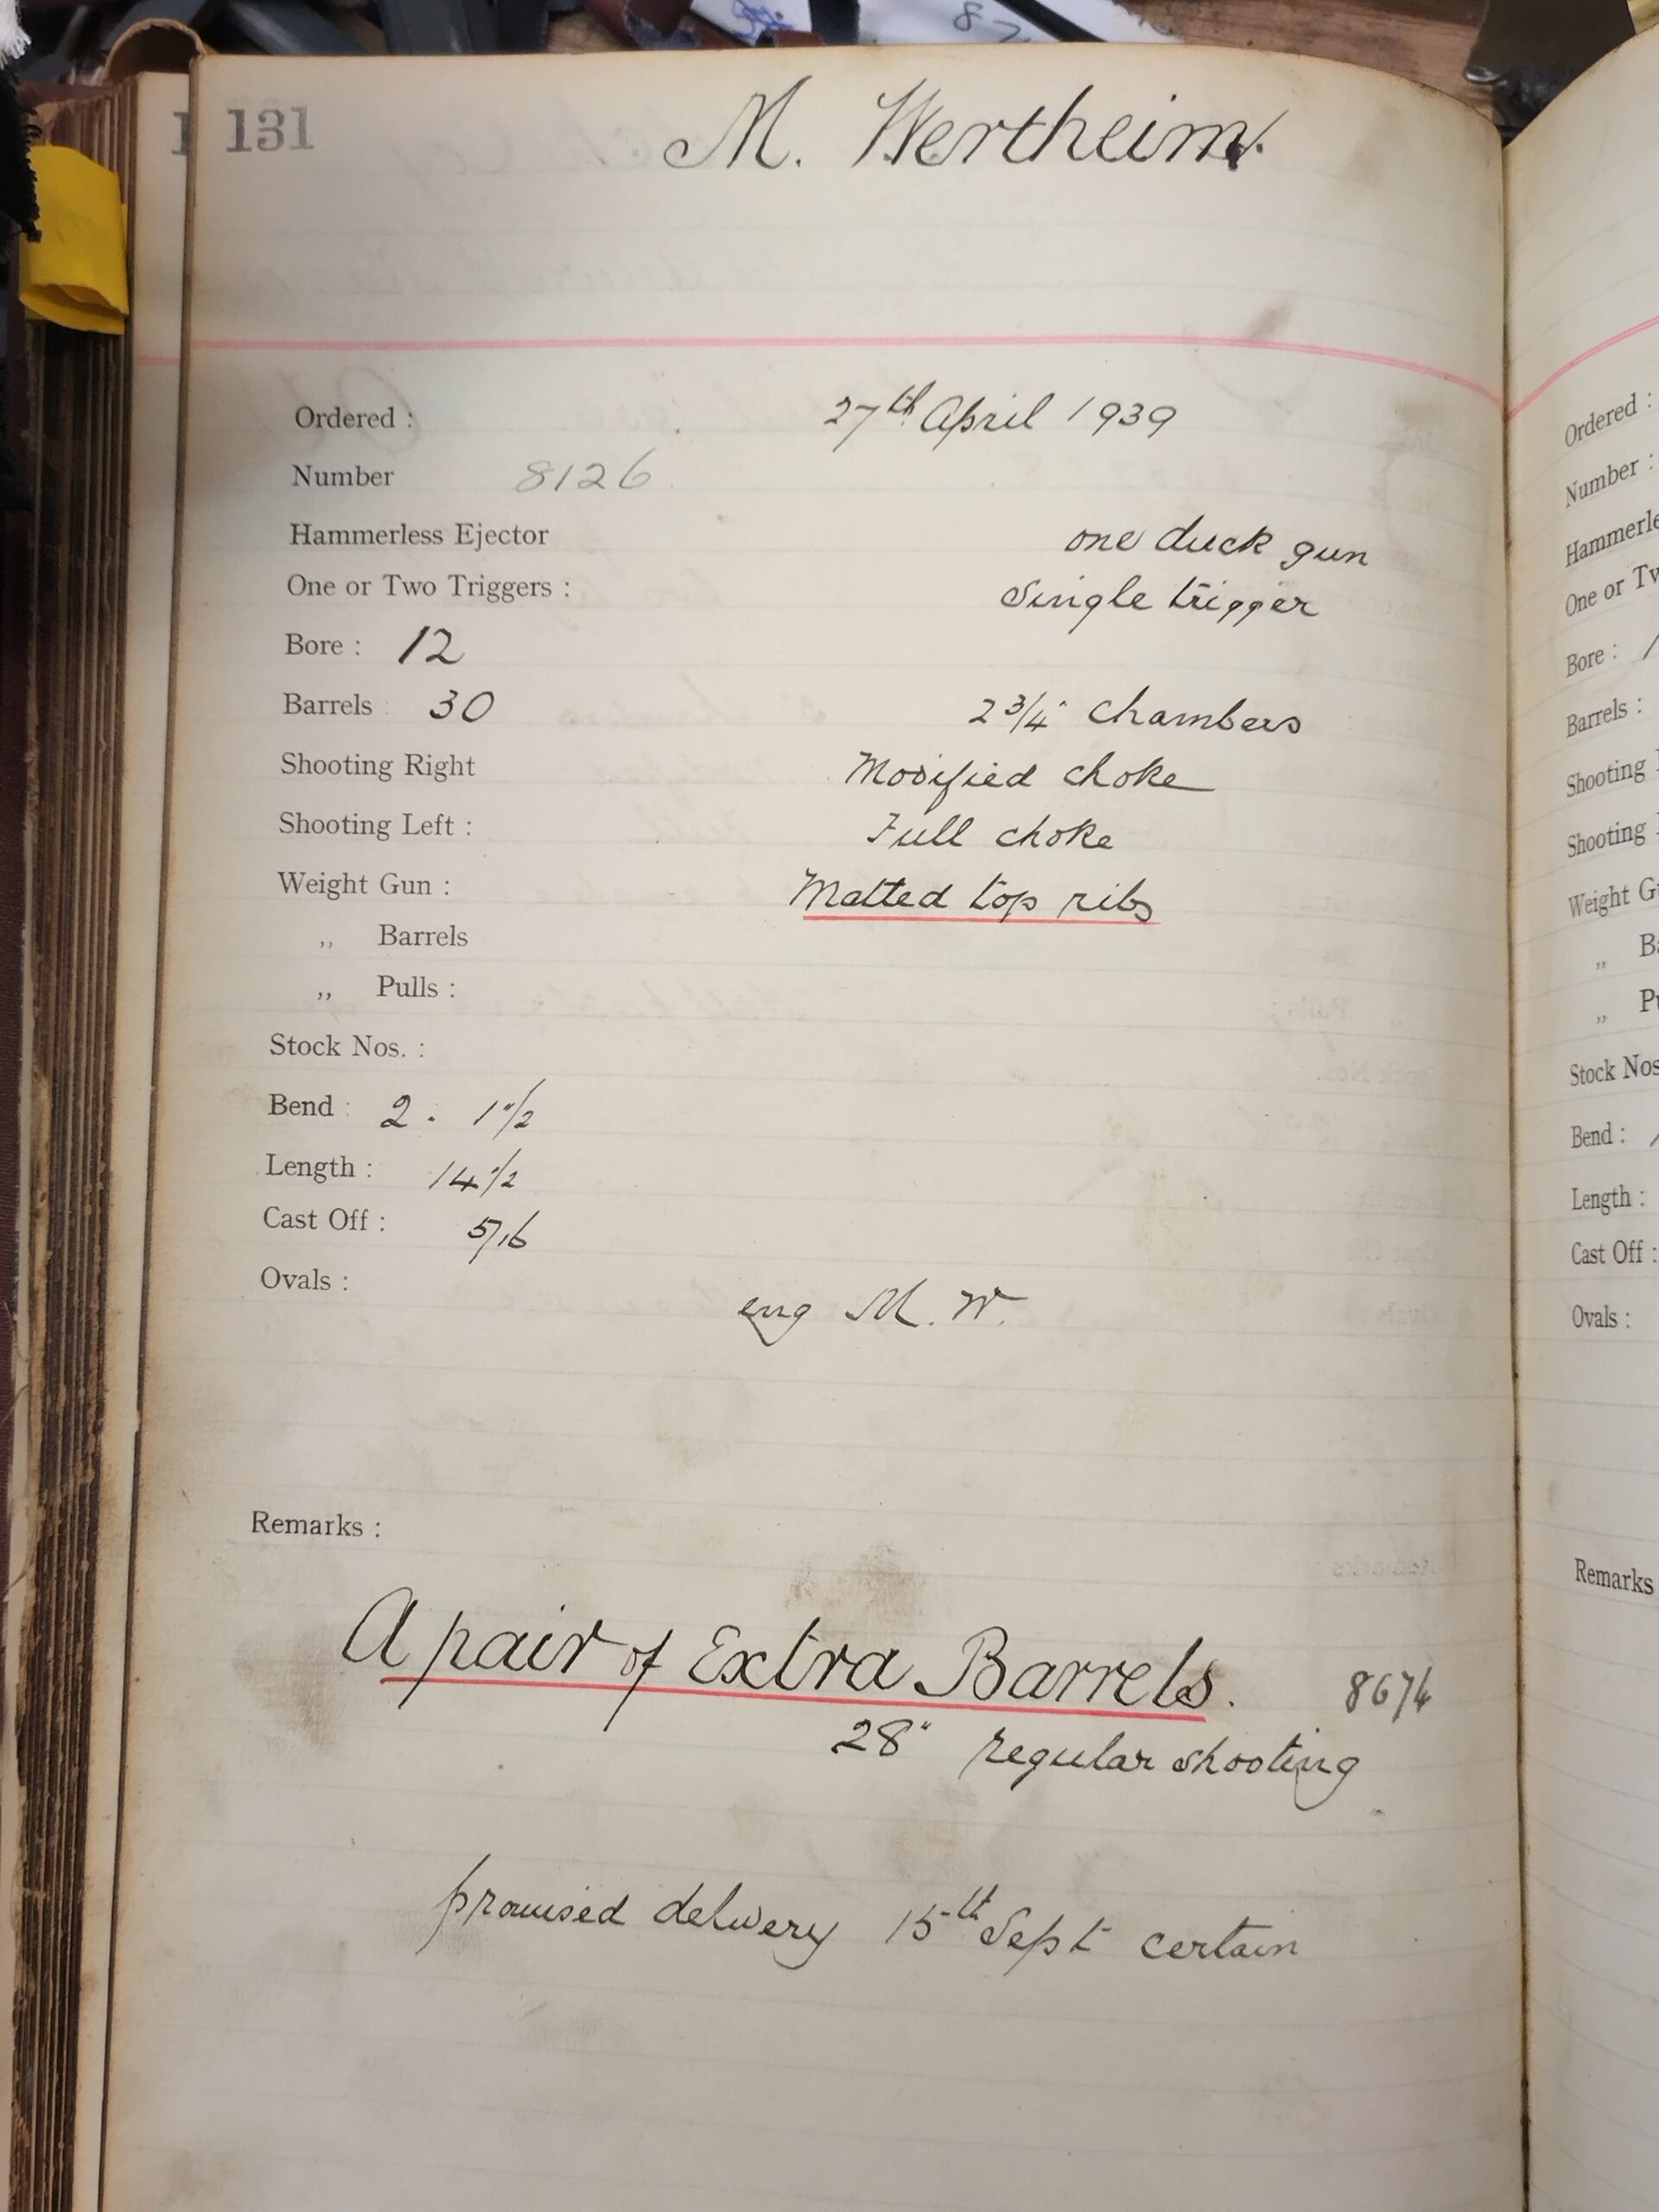 131
M. Wertheim.
Ordered : 27th April 1939
Number 8126
Hammerless Ejector one duck gun
One or Two Triggers : Single trigger
Bore : 12
Barrels : 30 2 3/4" chambers
Shooting Right Modified choke
Shooting Left : Full choke
Weight Gun : Matted top ribs
,, Barrels
,, Pulls :
Stock Nos. :
Bend : 2 . 1"/2
Length : 14 1/2
Cast Off : 5/16
Ovals :
eng M. W.
Remarks :
A pair of Extra Barrels. 8674
28" regular shooting
promised delivery 15th Sept certain
Ordered :
Number :
Bore :
Barrels :
Shooting
Shooting
Weight
,,
,,
Stock Nos
Bend :
Length :
Cast Off :
Ovals :
Remarks